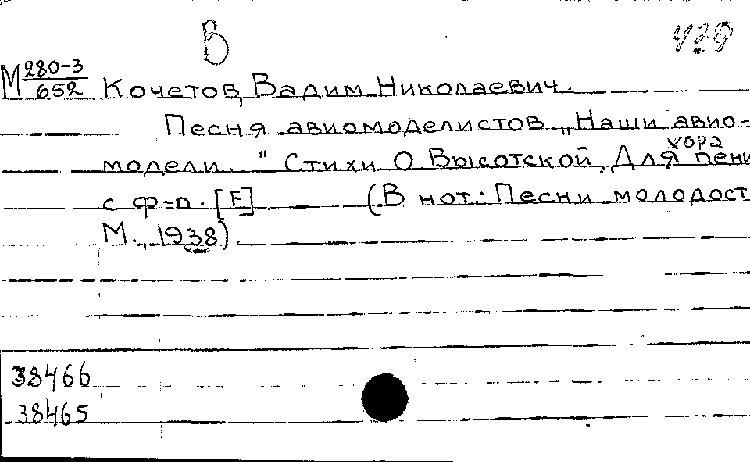 В 429
М 280-3
652
Кочетов, Вадим Николаевич.
Песня авиомоделистов „Наши авио-
модели." Стихи О Высотской. Для хора пени
с ф=п. [F] (В нот: Песни молодост
М., 1938).
38466
38465